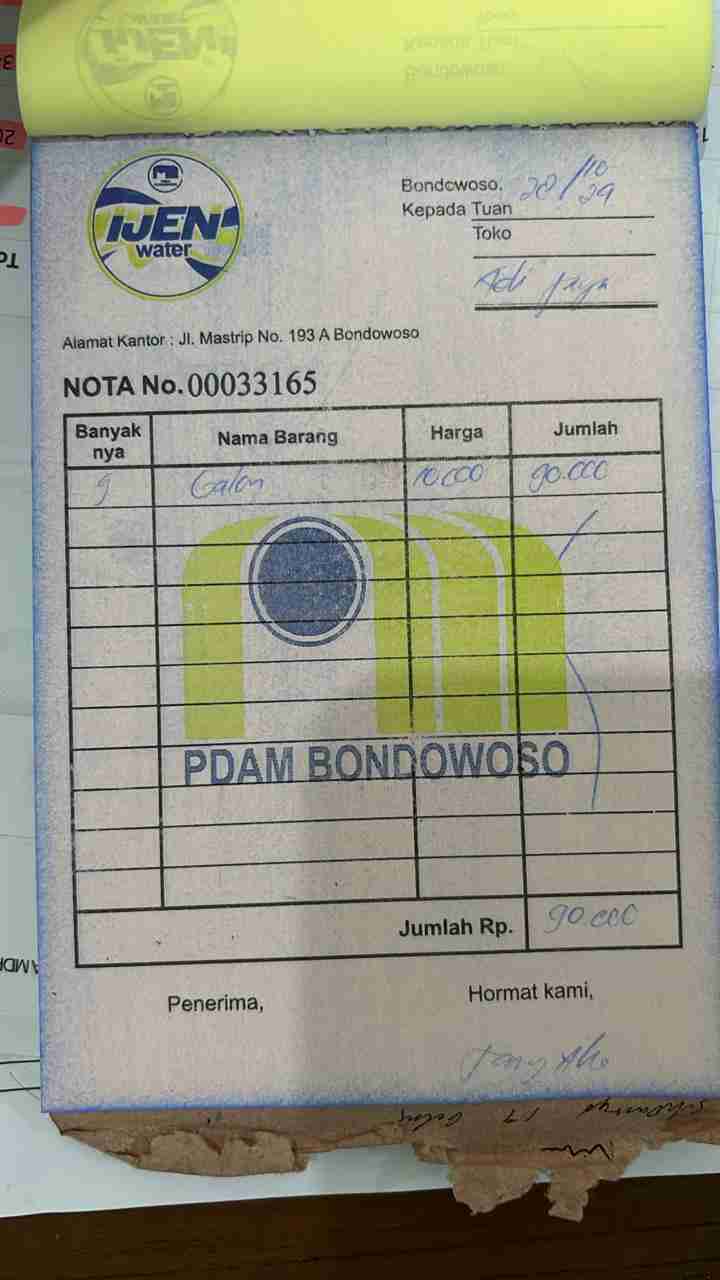 IJEN
water
Bondowoso, 28/10-24
Kepada Tuan
Toko
Adi jaya
Alamat Kantor : Jl. Mastrip No. 193 A Bondowoso
NOTA No. 00033165
Banyak nya Nama Barang Harga Jumlah
9 Galon 10.000 90.000
PDAM BONDOWOSO
Jumlah Rp. 90.000
Penerima, Hormat kami,